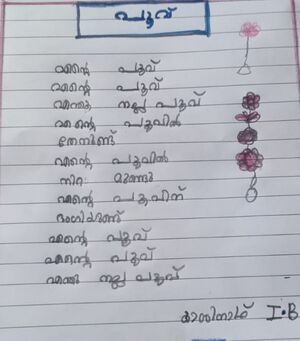 പൂവ്
എന്റെ പൂവ്
എന്റെ പൂവ്
എന്തു നല്ല പൂവ്
എന്റെ പൂവിൽ
തേനുണ്ട്
എന്റെ പൂവിൽ
നിറ
എന്റെ പൂവിന്
ഭംഗിയുണ്ട്
എന്റെ പൂവ്
എന്റെ പൂവ്
എന്തു നല്ല പൂവ്
കാശിനാഥ് I·B